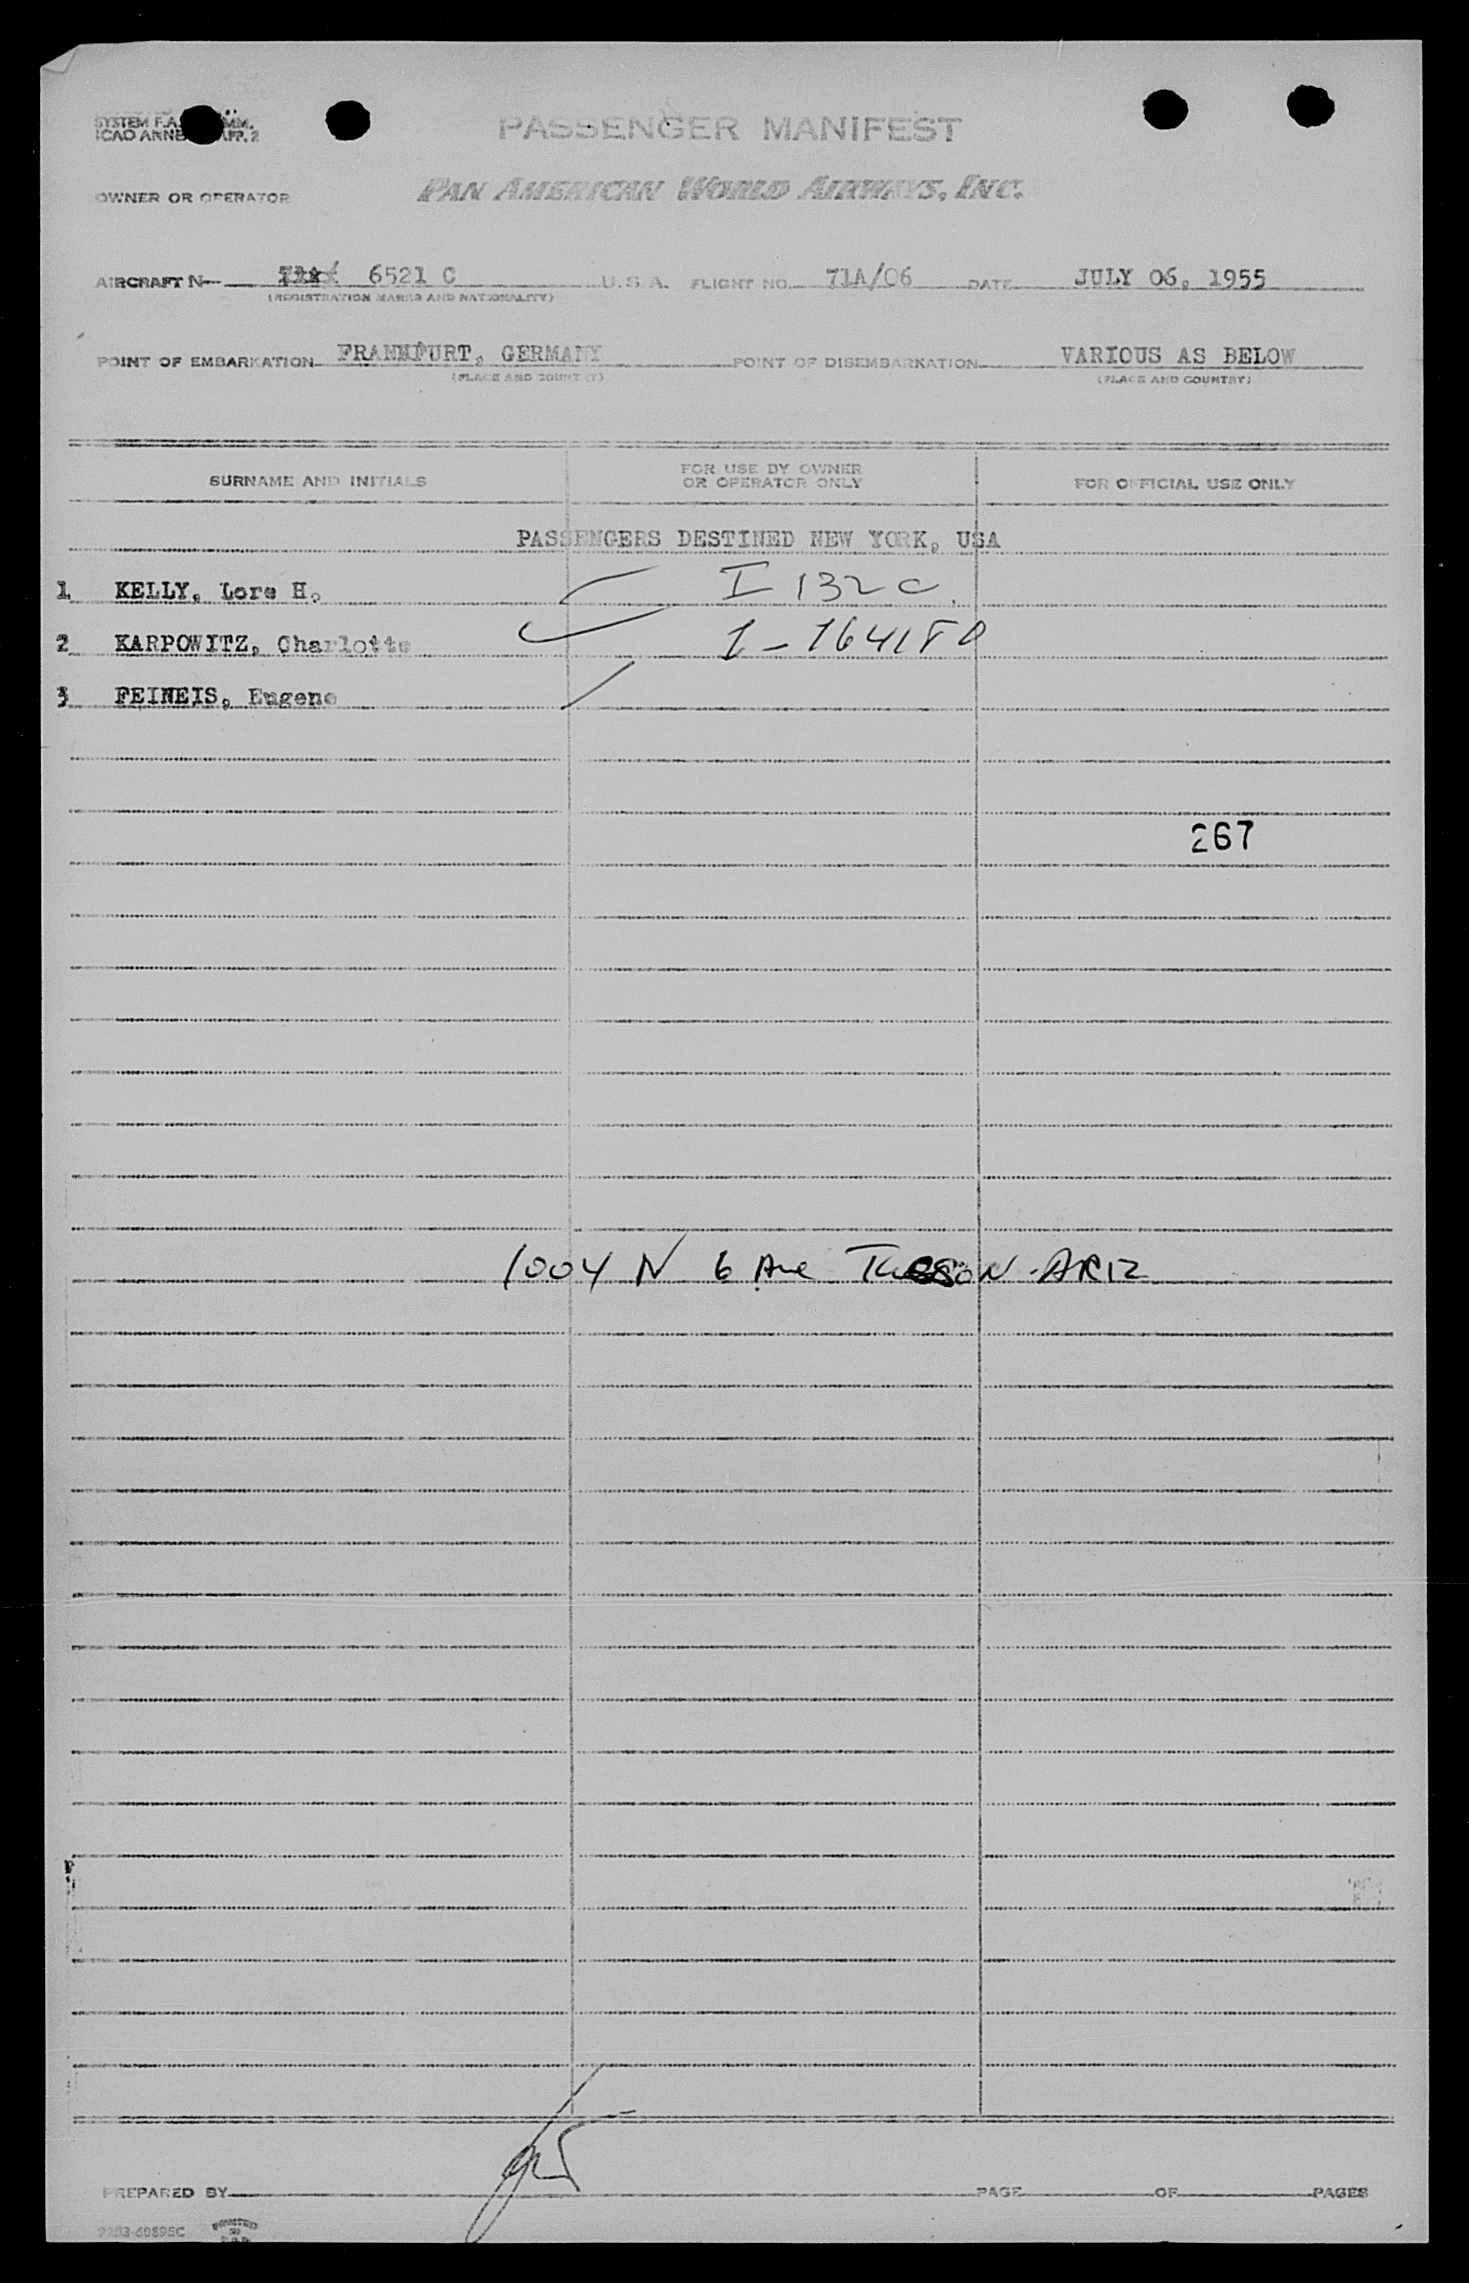 SYSTEM F.A. MM.
ICAO ANNE APP. 2
PASSENGER MANIFEST
OWNER OR OPERATOR PAN AMERICAN WORLD AIRWAYS, INC.
AIRCRAFT N— 6521 C U.S.A. FLIGHT NO. 71A/06 DATE JULY 06, 1955
(REGISTRATION MARKS AND NATIONALITY)
POINT OF EMBARKATION FRANKFURT, GERMANY POINT OF DISEMBARKATION VARIOUS AS BELOW
(PLACE AND COUNTRY) (PLACE AND COUNTRY)
SURNAME AND INITIALS FOR USE BY OWNER OR OPERATOR ONLY FOR OFFICIAL USE ONLY
PASSENGERS DESTINED NEW YORK, USA
1 KELLY, Lore H. I 132 C
2 KARPOWITZ, Charlotte I-164180
3 FEINEIS, Eugene
267
1004 N 6 Ave TUCSON. ARIZ
PREPARED BY PAGE OF PAGES
PRINTED IN U.S.A.